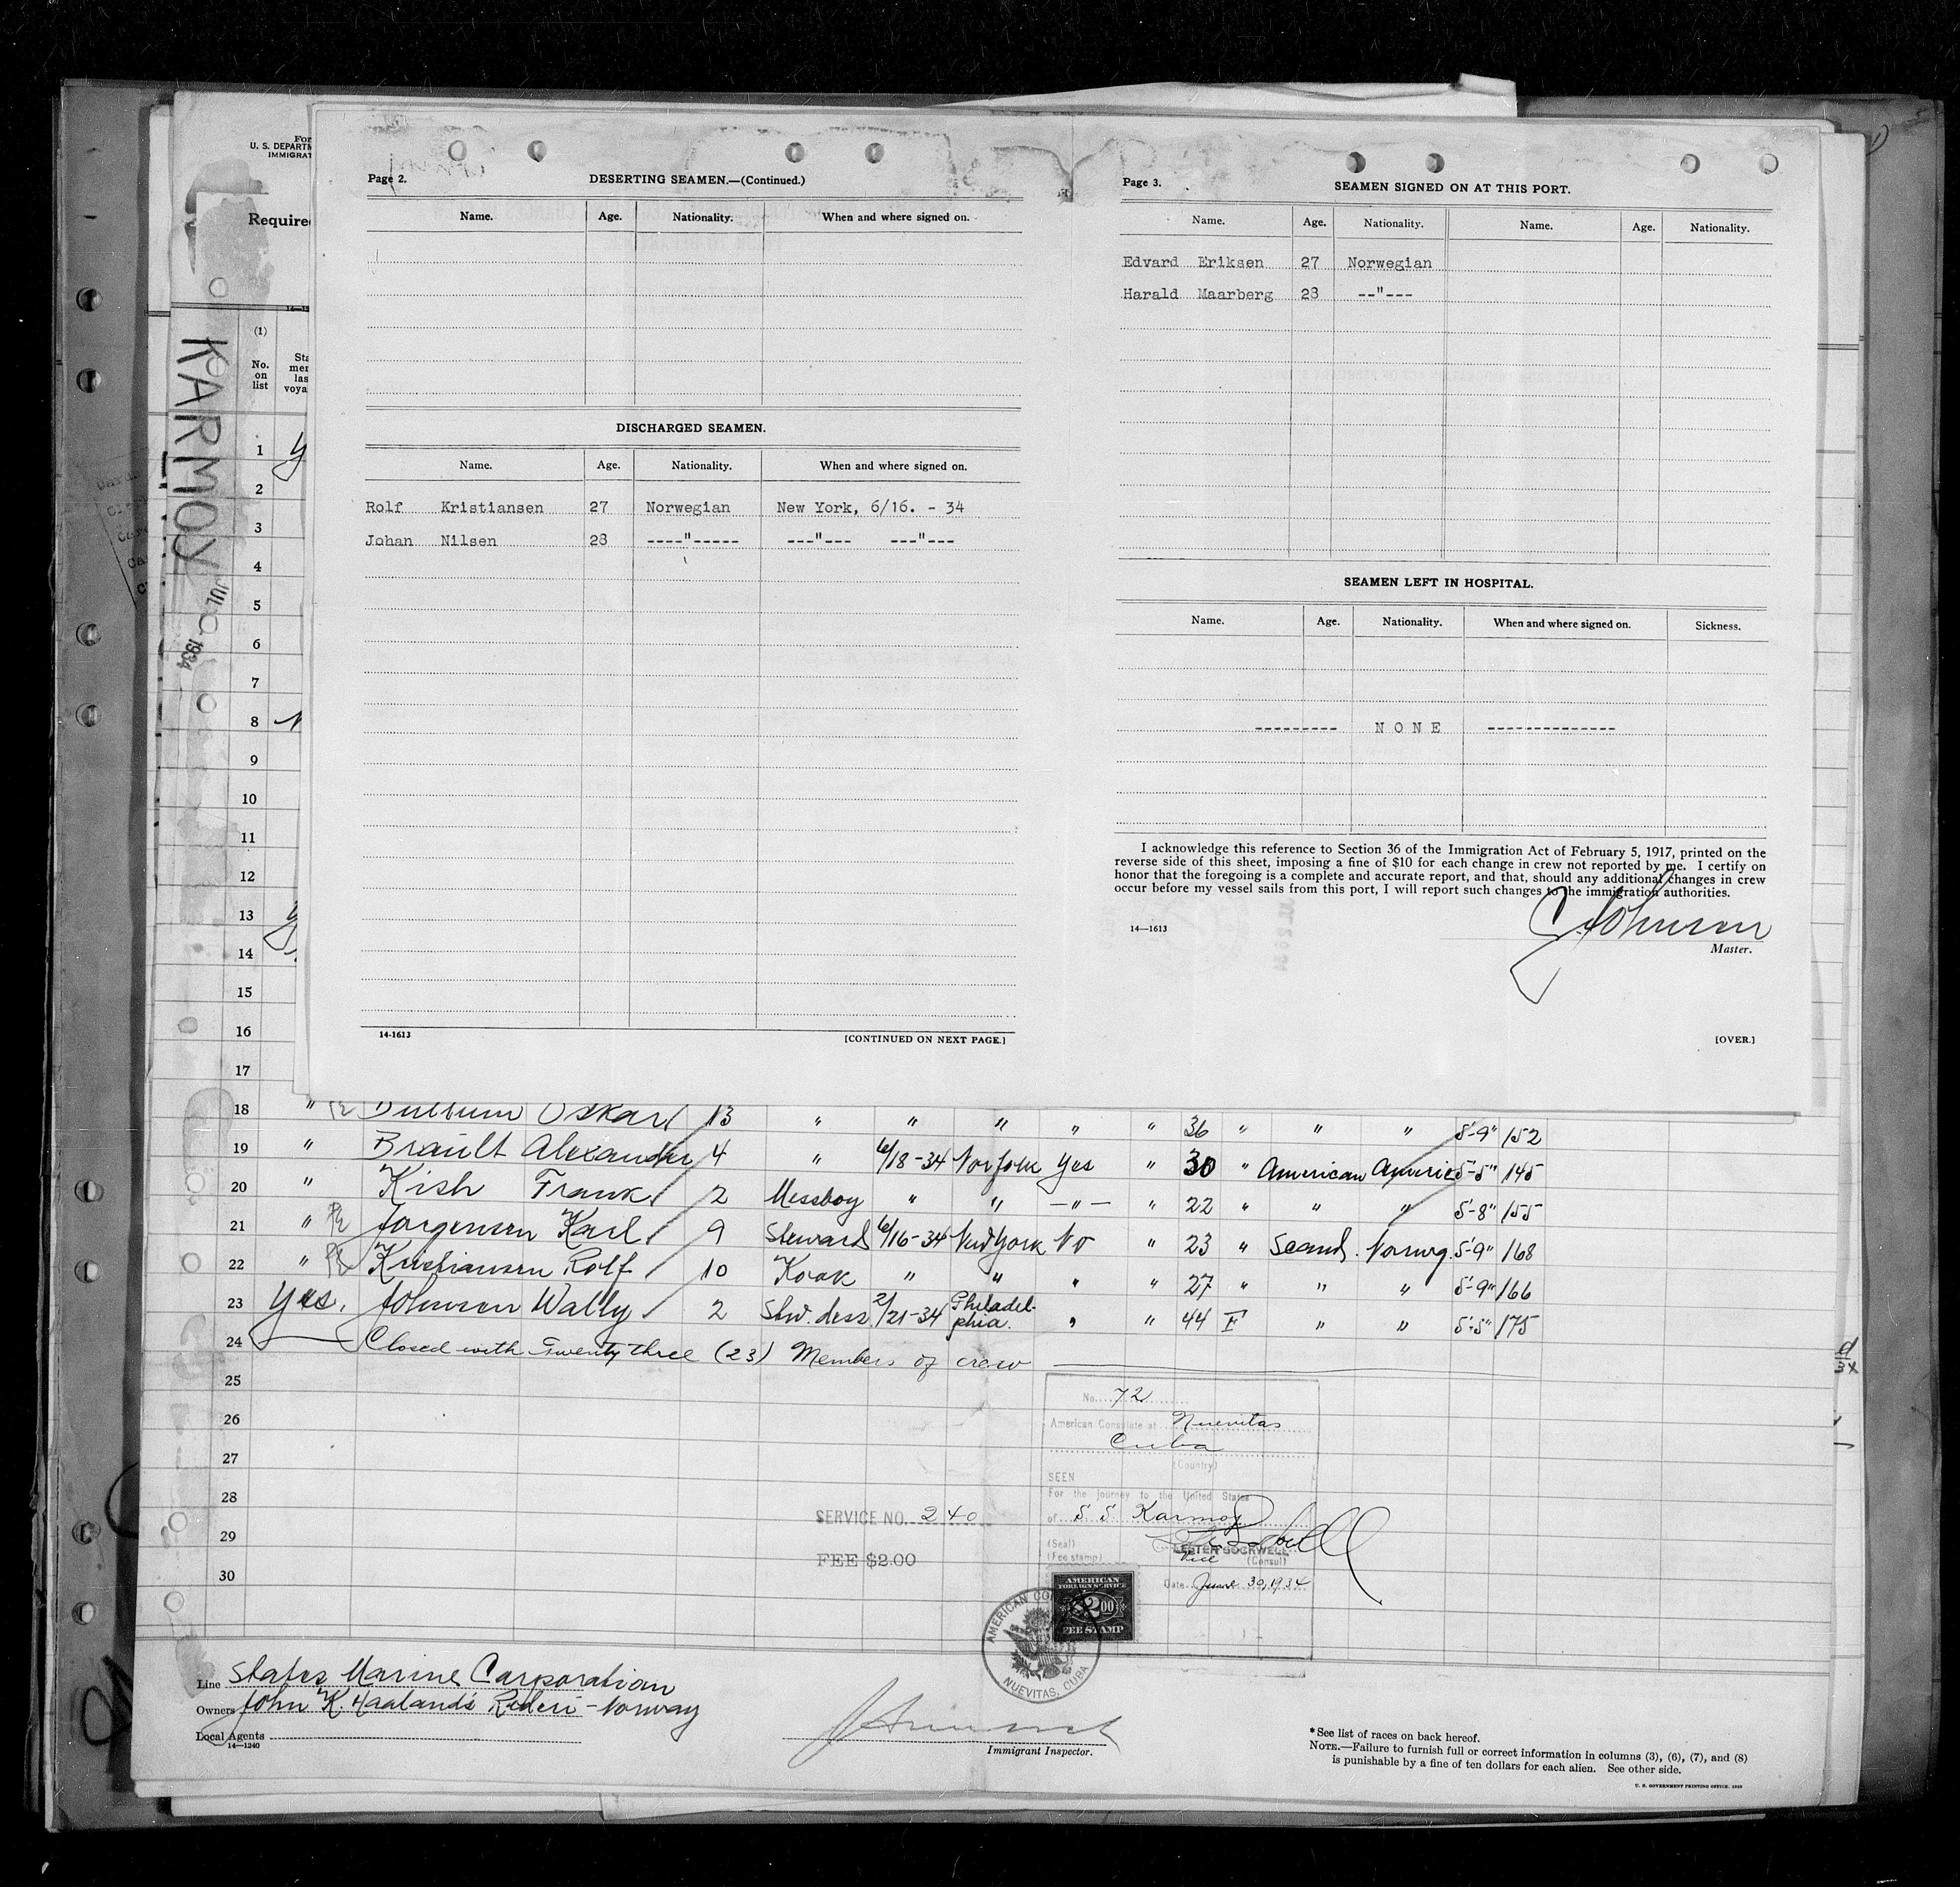 For
U. S. DEPARTM
IMMIGRAT
Required
KARMOY
JUL 1934
(1)
No. on list
Page 2.
DESERTING SEAMEN.—(Continued.)
Name. Age. Nationality. When and where signed on.
DISCHARGED SEAMEN.
Name. Age. Nationality. When and where signed on.
Rolf Kristiansen 27 Norwegian New York, 6/16. - 34
Johan Nilsen 28 ----"----- ---"--- ---"---
14-1613
[CONTINUED ON NEXT PAGE.]
Page 3.
SEAMEN SIGNED ON AT THIS PORT.
Name. Age. Nationality. Name. Age. Nationality.
Edvard Eriksen 27 Norwegian
Harald Maarberg 28 --"---
SEAMEN LEFT IN HOSPITAL.
Name. Age. Nationality. When and where signed on. Sickness.
--------- N O N E --------------
I acknowledge this reference to Section 36 of the Immigration Act of February 5, 1917, printed on the
reverse side of this sheet, imposing a fine of $10 for each change in crew not reported by me. I certify on
honor that the foregoing is a complete and accurate report, and that, should any additional changes in crew
occur before my vessel sails from this port, I will report such changes to the immigration authorities.
14—1613
Johnson
Master.
[OVER.]
1
2
3
4
5
6
7
8
9
10
11
12
13
14
15
16
17
18 " Oskar 13 " " " " " 36 " " " 5'-9" 152
19 " Brault Alexander 4 " 6/18-34 Norfolk Yes " 30 " American Americ 5'-5" 145
20 " Kish Frank 2 Messboy " " —"— " 22 " " " 5'-8" 155
21 " Jorgensen Karl 9 Steward 6/16-34 New York No " 23 " Scand. Norwg. 5'-9" 168
22 " Kristiansen Rolf 10 Kook " " " " 27 " " " 5'-9" 166
23 Yes. Johnson Wally 2 Stw. dess. 2/21-34 Philadelphia. " " 44 F " " 5'-5" 175
24 Closed with Twenty three (23) Members of crew
25
26
27
28
29
30
No. 72
American Consulate at Nuevitas
Cuba
(Country)
SEEN
For the journey to the United States
of S S Karmoy
(Seal)
(Fee stamp)
LESTER SOCKWELL
Vice (Consul)
Date June 30, 1934
SERVICE NO. 240
FEE $2.00
AMERICAN
FOREIGN SERVICE
$2.00
FEE STAMP
AMERICAN CO
NUEVITAS, CUBA
Line States Marine Corporation
Owners John K. Haaland's Rederi - Norway
Local Agents
14—1240
Immigrant Inspector.
* See list of races on back hereof.
NOTE.—Failure to furnish full or correct information in columns (3), (6), (7), and (8)
is punishable by a fine of ten dollars for each alien. See other side.
U. S. GOVERNMENT PRINTING OFFICE